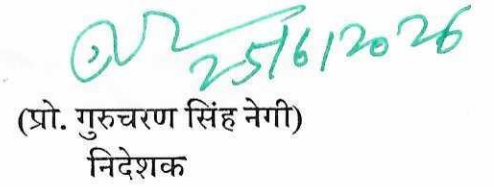 25/6/2026
(प्रो. गुरुचरण सिंह नेगी)
निदेशक